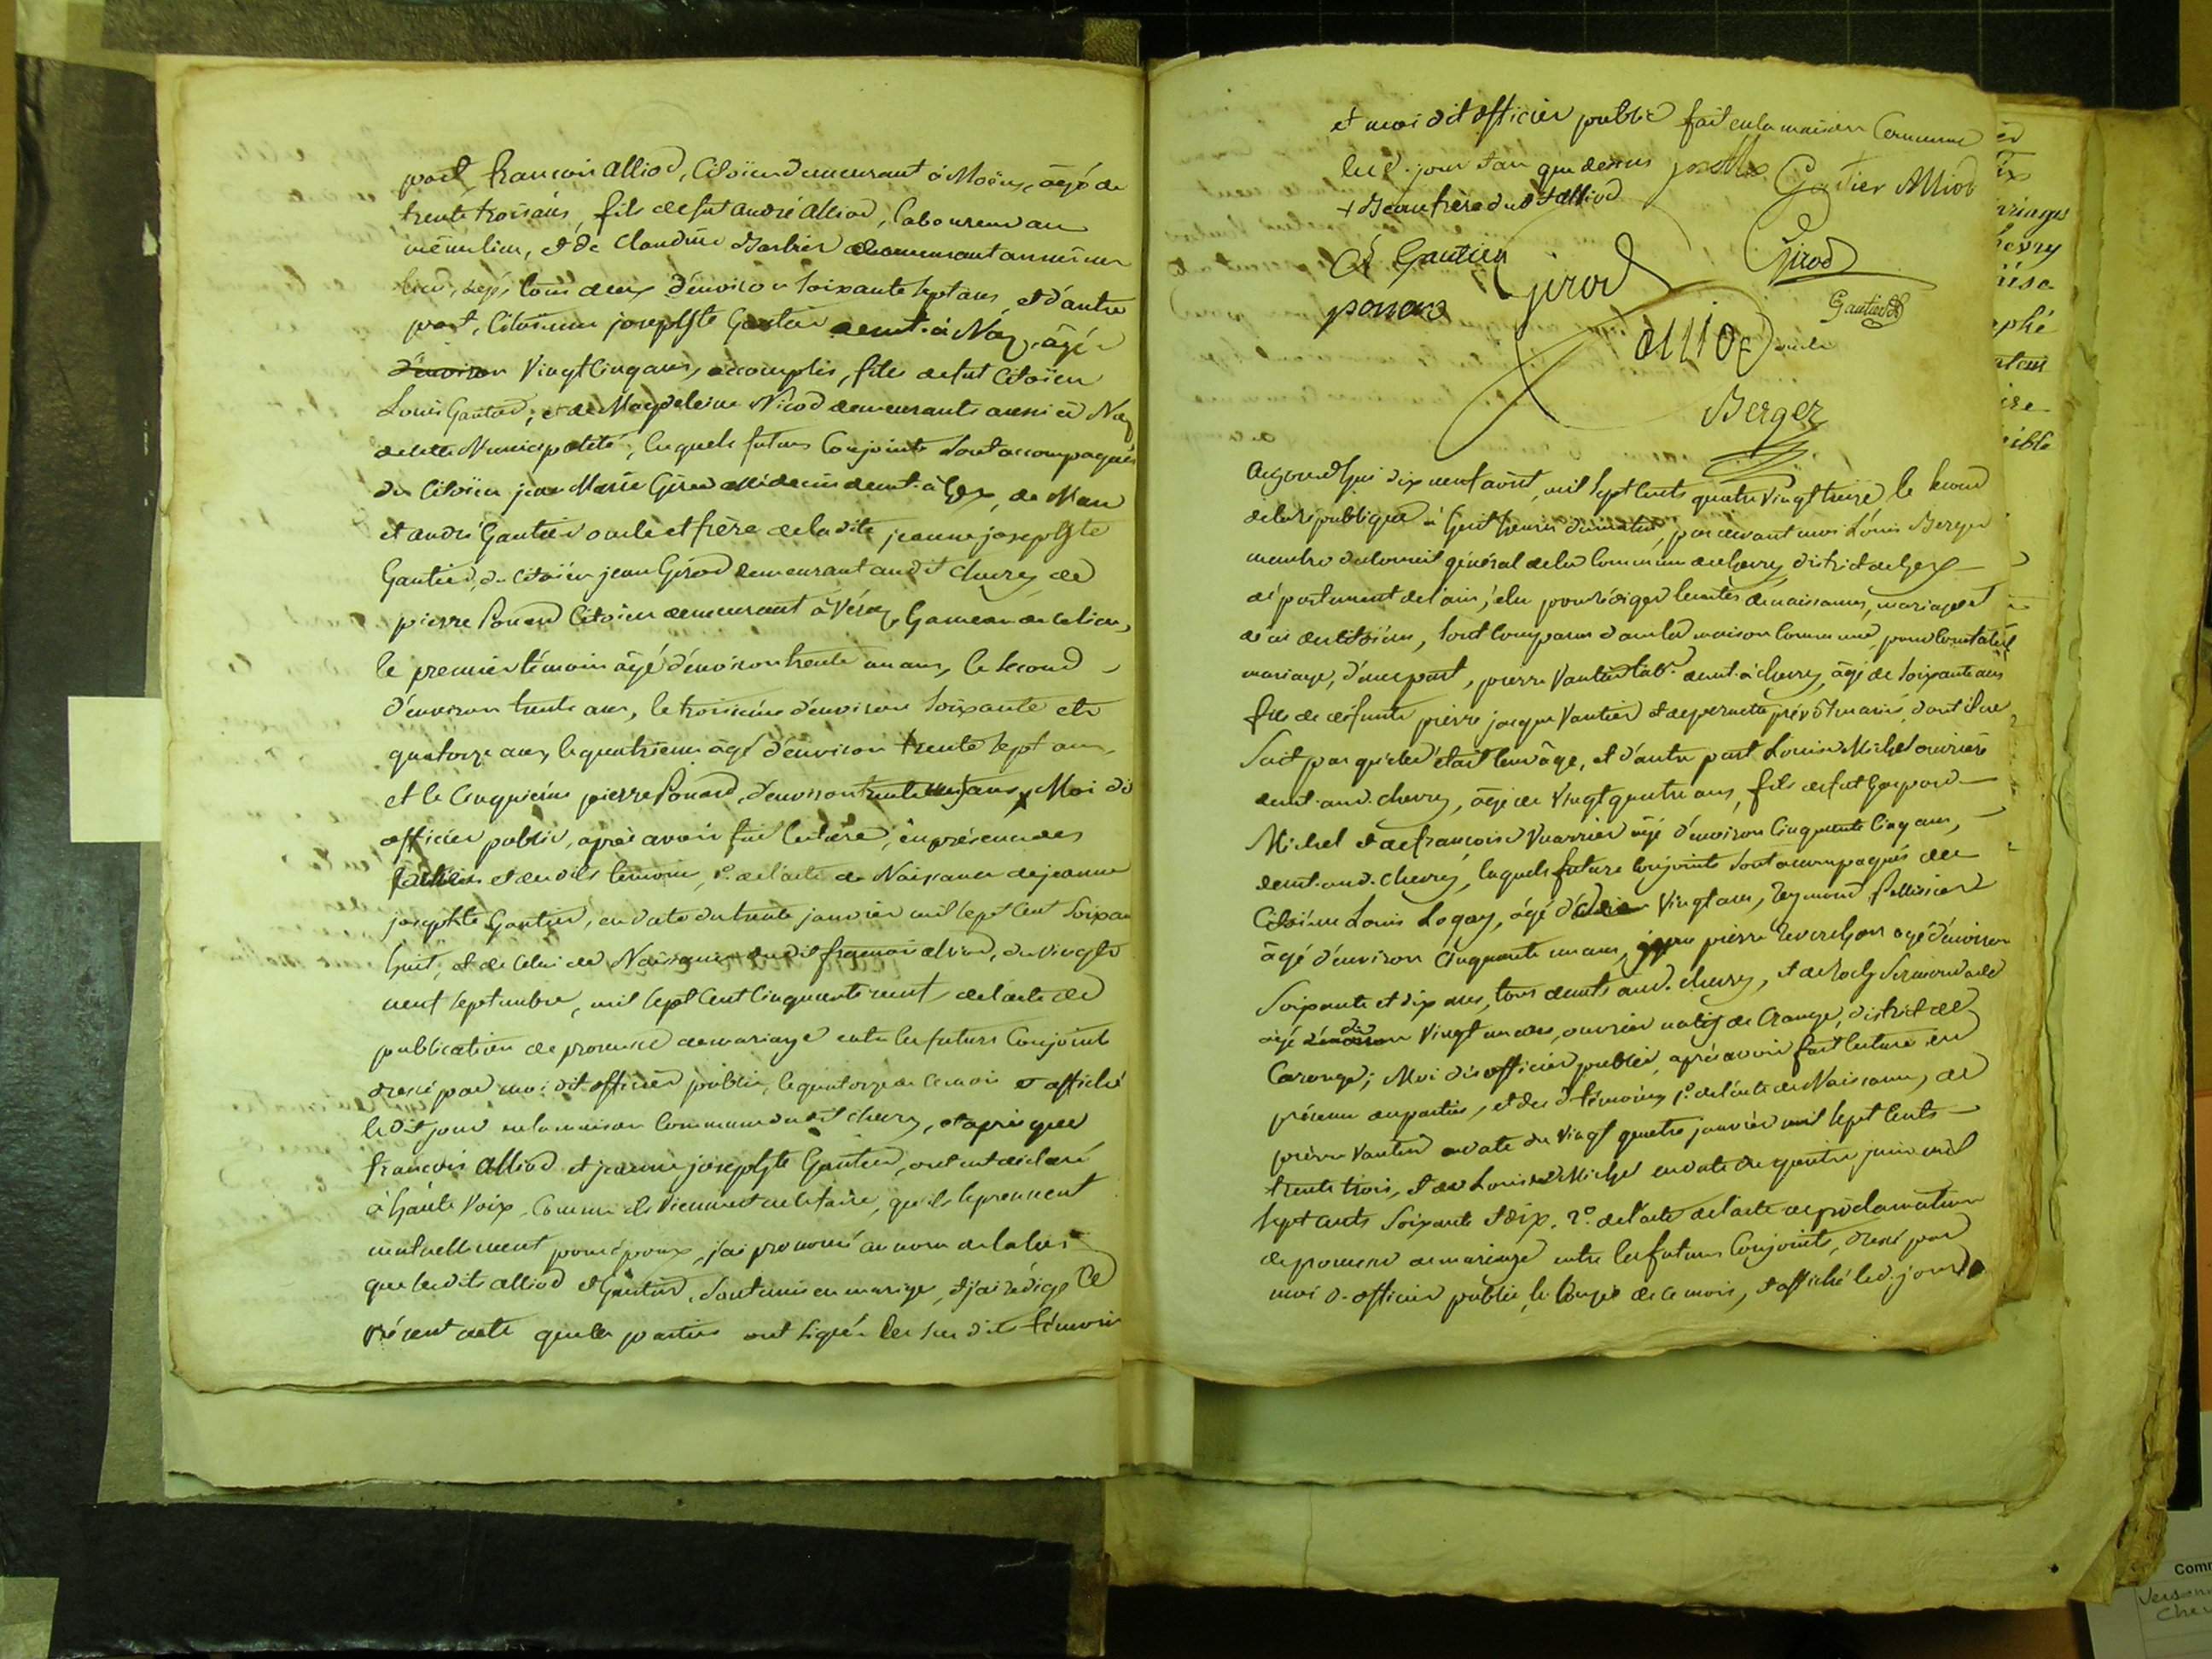 part, francois alliod, Citoïen demeurant à Moëns, âgé de
trente trois ans, fils de fut andré alliod, laboureur au
même lieu, et de Claudine Barbier demeurant au même
lieu, agés tous deux d'environ soixante sept ans, et d'autre
part, Citoïenne josephte Gautier demt. à Naz, âgée
d'environ vingt cinq ans, accomplis, fille de fut Citoïen
Louis Gautier, et de Magdeleine Nicod demeurants aussi à Naz
de cette Municipalité, lesquels futurs Conjoints sont accompagnés
du Citoïen jean Marie Girod médecin demt. à Gex, de Marc
et andré Gautier oncle et frère de la dite jeanne josephte
Gautier, du Citoïen jean Girod demeurant aud.t chevry, de
pierre Ponard Citoïen demeurant à Véraz, hameau de ce lieu,
le premier témoin âgé d'environ trente un ans, le second
d'environ trente ans, le troisième d'environ soixante et
quatorze ans, le quatrieme âgé d'environ trente sept ans,
et le cinquième pierre Ponard, d'environ ans x Moi dit
officier public, après avoir fait lecture, en présence des
parties et des dits témoins, 1°. de l'acte de Naissance de jeanne
josephte Gautier, en date du trente janvier mil sept cent soixan
huit, et de celui de Naissance du dit francois alliod, du vingt
neuf septembre, mil sept cent cinquante neuf, de l'acte de
publication de promesse de mariage entre les futurs Conjoints
dressé par moi dit officier public, le quatorze de ce mois et affiché
le dit jour en la maison Commune du dit chevry, et après que
francois alliod et jeanne josephte Gautier, ont eut déclaré
à haute voix, Comme ils viennent de le faire, qu'ils se prennent
mutuellement pour époux, j'ai prononcé au nom de la loi
que les dits alliod et Gautier, sont unis en mariage, et j'ai rédigé le
présent acte que les parties ont signé les sus dits témoins
et moi dit officier public fait en la maison Commune
led. jour et an que dessus josette Gautier Alliod
+ Beaufrère dudt alliod
Gautier girod Girod
ponard Gautier
alliod oncle
Berger
aujourd'hui dix neuf août, mil sept cents quatre vingt treize, le second
de la république à huit heures du matin, par devant moi Louis Berger
membre du Conseil général de la Commune de chevry, district de Gex
département de l'ain, élu pour rédiger les actes de naissances, mariages et
décès des Citoïens, sont comparus dans la maison Commune, pour contracter
mariage, d'une part, pierre Vautier labr. demt. à chevry, âgé de soixante ans
fils de défunts pierre jacque Vautier et de pernette prévôt mariés, dont il ne
sait pas quel était leur âge, et d'autre part Louise Michel ouvrière
demt. aud. chevry, âgée de vingt quatre ans, fille de fut Gaspard
Michel et de francoise Vuarrier âgé d'environ cinquante cinq ans,
demt. aud. chevry, lesquels futurs Conjoints sont accompagnés de
Citoïens Louis Logay, âgé vingt ans, Reymond Pellissier
âgé d'environ cinquante un ans, pierre Reverchon agé d'environ
soixante et dix ans, tous demts. aud. chevry, et de
âgé de vingt un ans, ouvrier natif de Crange, district de
Carouge; Moi dit officier public, après avoir fait lecture en
présence des parties, et des dt témoins 1°. de l'acte de Naissance, de
pierre Vautier en date du vingt quatre janvier mil sept cents
trente trois, et de Louise Michel en date du quatre juin mil
sept cents soixante et dix. 2°. de l'acte de l'acte de proclamation
de promesse de mariage entre les futurs Conjoints, dressé par
moi d. officier public, le onze de ce mois, et affiché led. jour